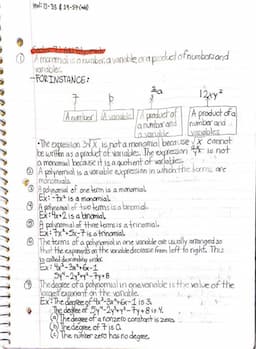 ① A monomial is a number, a variable, or a product of numbers and
variables.
-FOR INSTANCE:
7
b
2/3 a
12xy²
A number
A variable
A product of
a number and
a variable
A product of a
number and
variables
•The expression 3√x is not a monomial because √x cannot
be written as a product of variables. The expression is not
a monomial because it is a quotient of variables.
② A polynomial is a variable expression in which the terms are
monomials.
③ A polynomial of one term is a monomial.
Ex: -7x² is a monomial.
④ A polynomial of two terms is a binomial.
Ex: 4x+2 is a binomial.
⑤ A polynomial of three terms is a trinomial.
Ex: 7x²+5x-7 is a trinomial.
⑥ The terms of a polynomial in one variable are usually arranged so
that the exponents on the variable decrease from left to right. This
is called descending order.
Ex: 4x³-3x²+6x-1
5y⁴-2y³+y²-7y+8
⑦ The degree of a polynomial in one variable is the value of the
largest exponent on the variable.
Ex: The degree of 4x³-3x²+6x-1 is 3.
The degree of 5y⁴-2y³+y²-7y+8 is 4.
(a) The degree of a nonzero constant is zero.
(b) The degree of 7 is 0.
(c) The number zero has no degree.